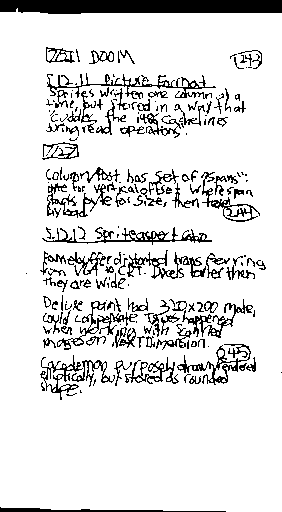 DOOM
243
5.12.11 Picture Format
Sprites written one column at a
time, but stored in a way that
"cuddles the 486 cachelines
during read operations".
Column/Post has set of "spans":
one for vertical offset where span
starts, byte for size, then
payload.
244
5.12.12 Sprite aspect ratio
Framebuffer distorted transferring
from VGA to CRT. Pixels taller than
they are wide.
Deluxe paint had 320x200 mode,
could compensate. Issues happened
when working with scanned
images on NeXTDimension.
245
Cacodemon purposely drawn/rendered
elliptically, but stored as rounded
shape.